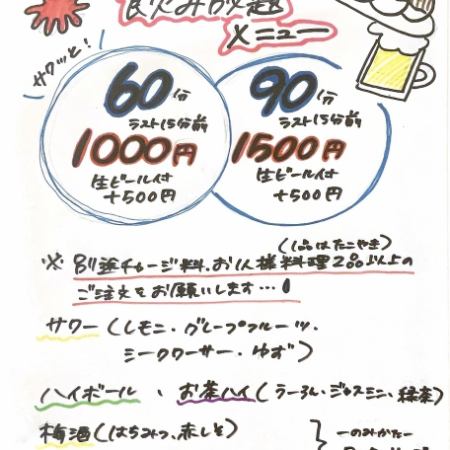 飲み放題
メニュー
サクッと!
60分
ラスト15分前
1000円
生ビール付
+500円
90分
ラスト15分前
1500円
生ビール付
+500円
(1品はたこやき)
※別途チャージ料、お1人様料理2品以上の
ご注文をお願いします…!
サワー(レモン・グレープフルーツ・
シークワーサー・ゆず)
ハイボール、お茶ハイ(うーろん・ジャスミン・緑茶)
梅酒(はちみつ、赤しそ)
ーのみかたー